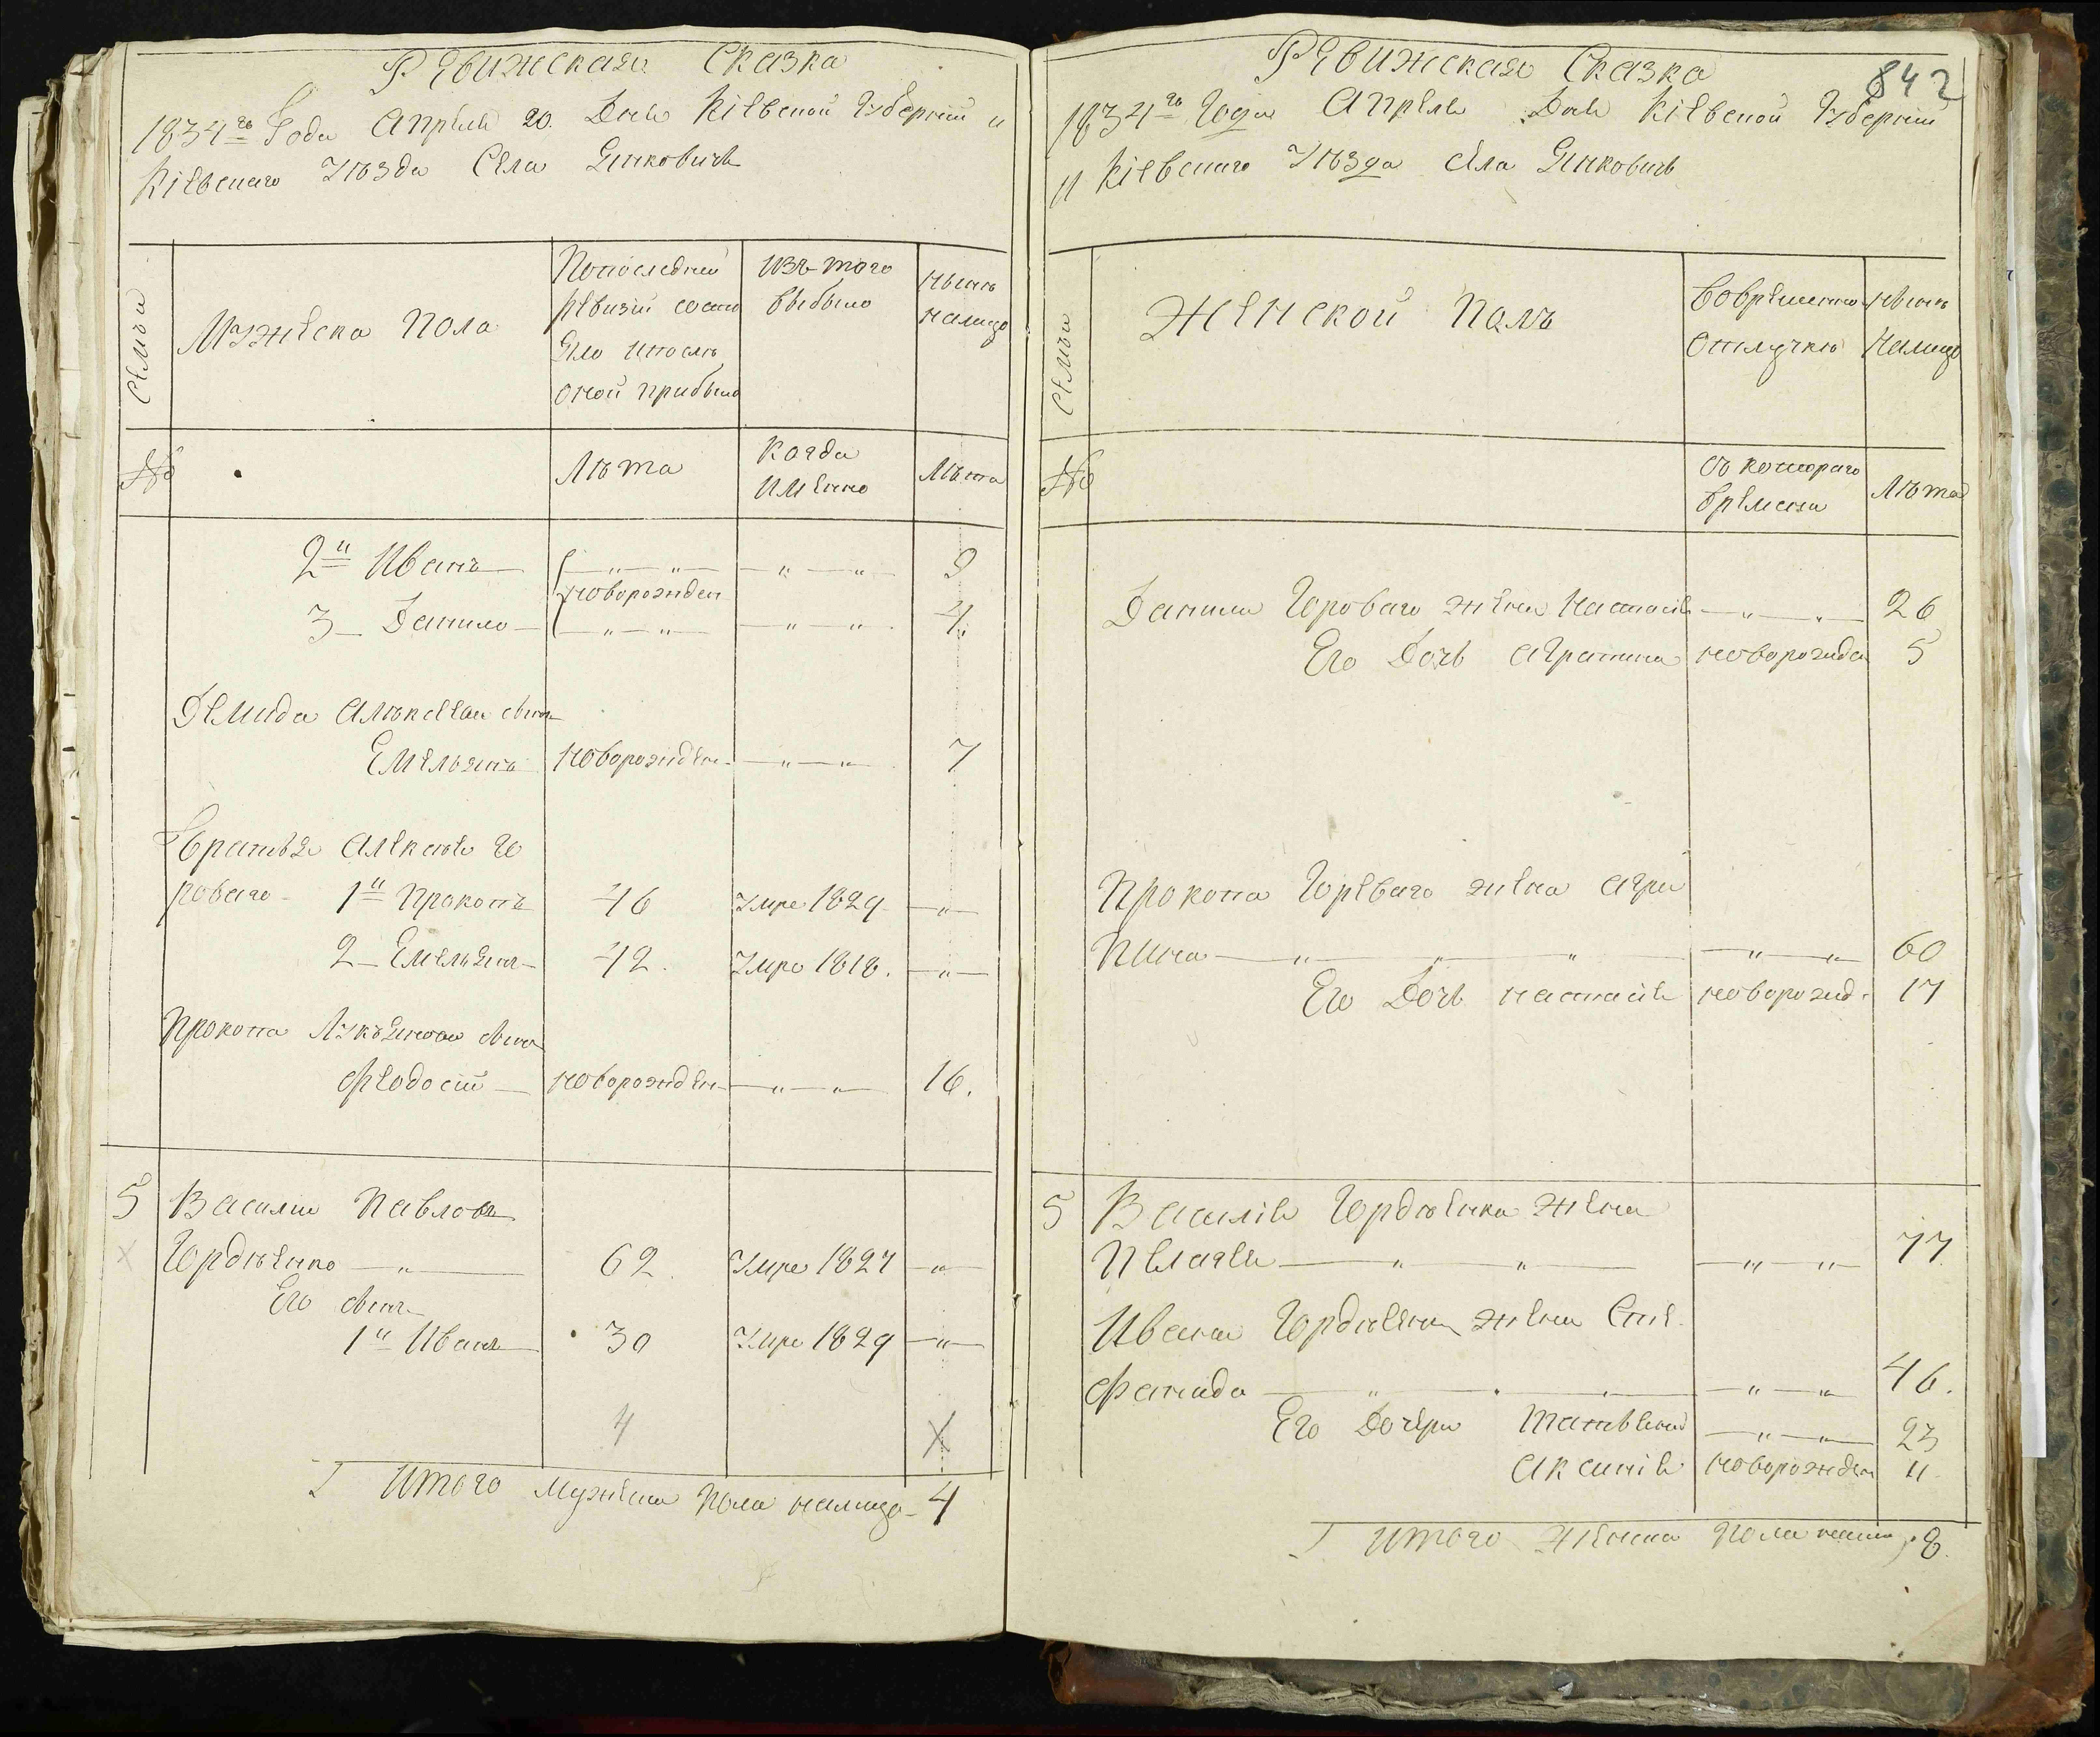 Ревижская Сказка
1834го Года Апреля 20. Дня Кіевской Губерніи и
Кіевскаго Уезда Села Янковичь
Семьи
Мужеска пола
По последней
ревизіи состо
яло и после
оной прибыло
изъ того
выбыло
ныне
налицо
№
Лета
Когда
имянно
Лета
2й Иванъ — „ — „ — „ — „ 9
новорожден
3 — Данило — „ — „ — „ — „ 4
Демида Алексеева сынъ
Емельянъ новорожден — „ — „ 7
Братья Алексея Го
роваго — 1й Прокопъ 46 Умре 1829 — „ —
2 — Емельянъ — 42. Умре 1818. — „ —
Прокопа Лукъянова сынъ
Феодосій — новорожден — „ — „ 16.
5 Василій Павловъ
Гордіенко — „ — 62. Умре 1827 — „ —
Его сынъ
1й Иванъ 30 Умре 1829 — „ —
4 X
Итого мужеска пола налицо — 4
842
Ревижская Сказка
1834го Года Апреля Дня Кіевской Губерніи
и Кіевскаго Уезда села Янковичь
Семьи
Женской Полъ
Во временной
отлучке
ныне
налицо
№
съ котораго
времени
Лета
Данила Гороваго жена Настасія — „ — „ — 26
Его Дочь Агрипина новорожден 5
Прокопа Гореваго жена Агри
пина — „ — „ — „ — „ — „ — 60
Его Дочь Настасія новорожд. 17
5 Василія Гордіенка жена
Пелагея — „ — „ — „ — „ — 77
Ивана Гордіенка жена Сте.
фанида — „ — „ — „ — 46.
Его Дочери Татьяна — „ — „ — 23
Аксинія новорожден 11
Итого женска пола налицо 8.